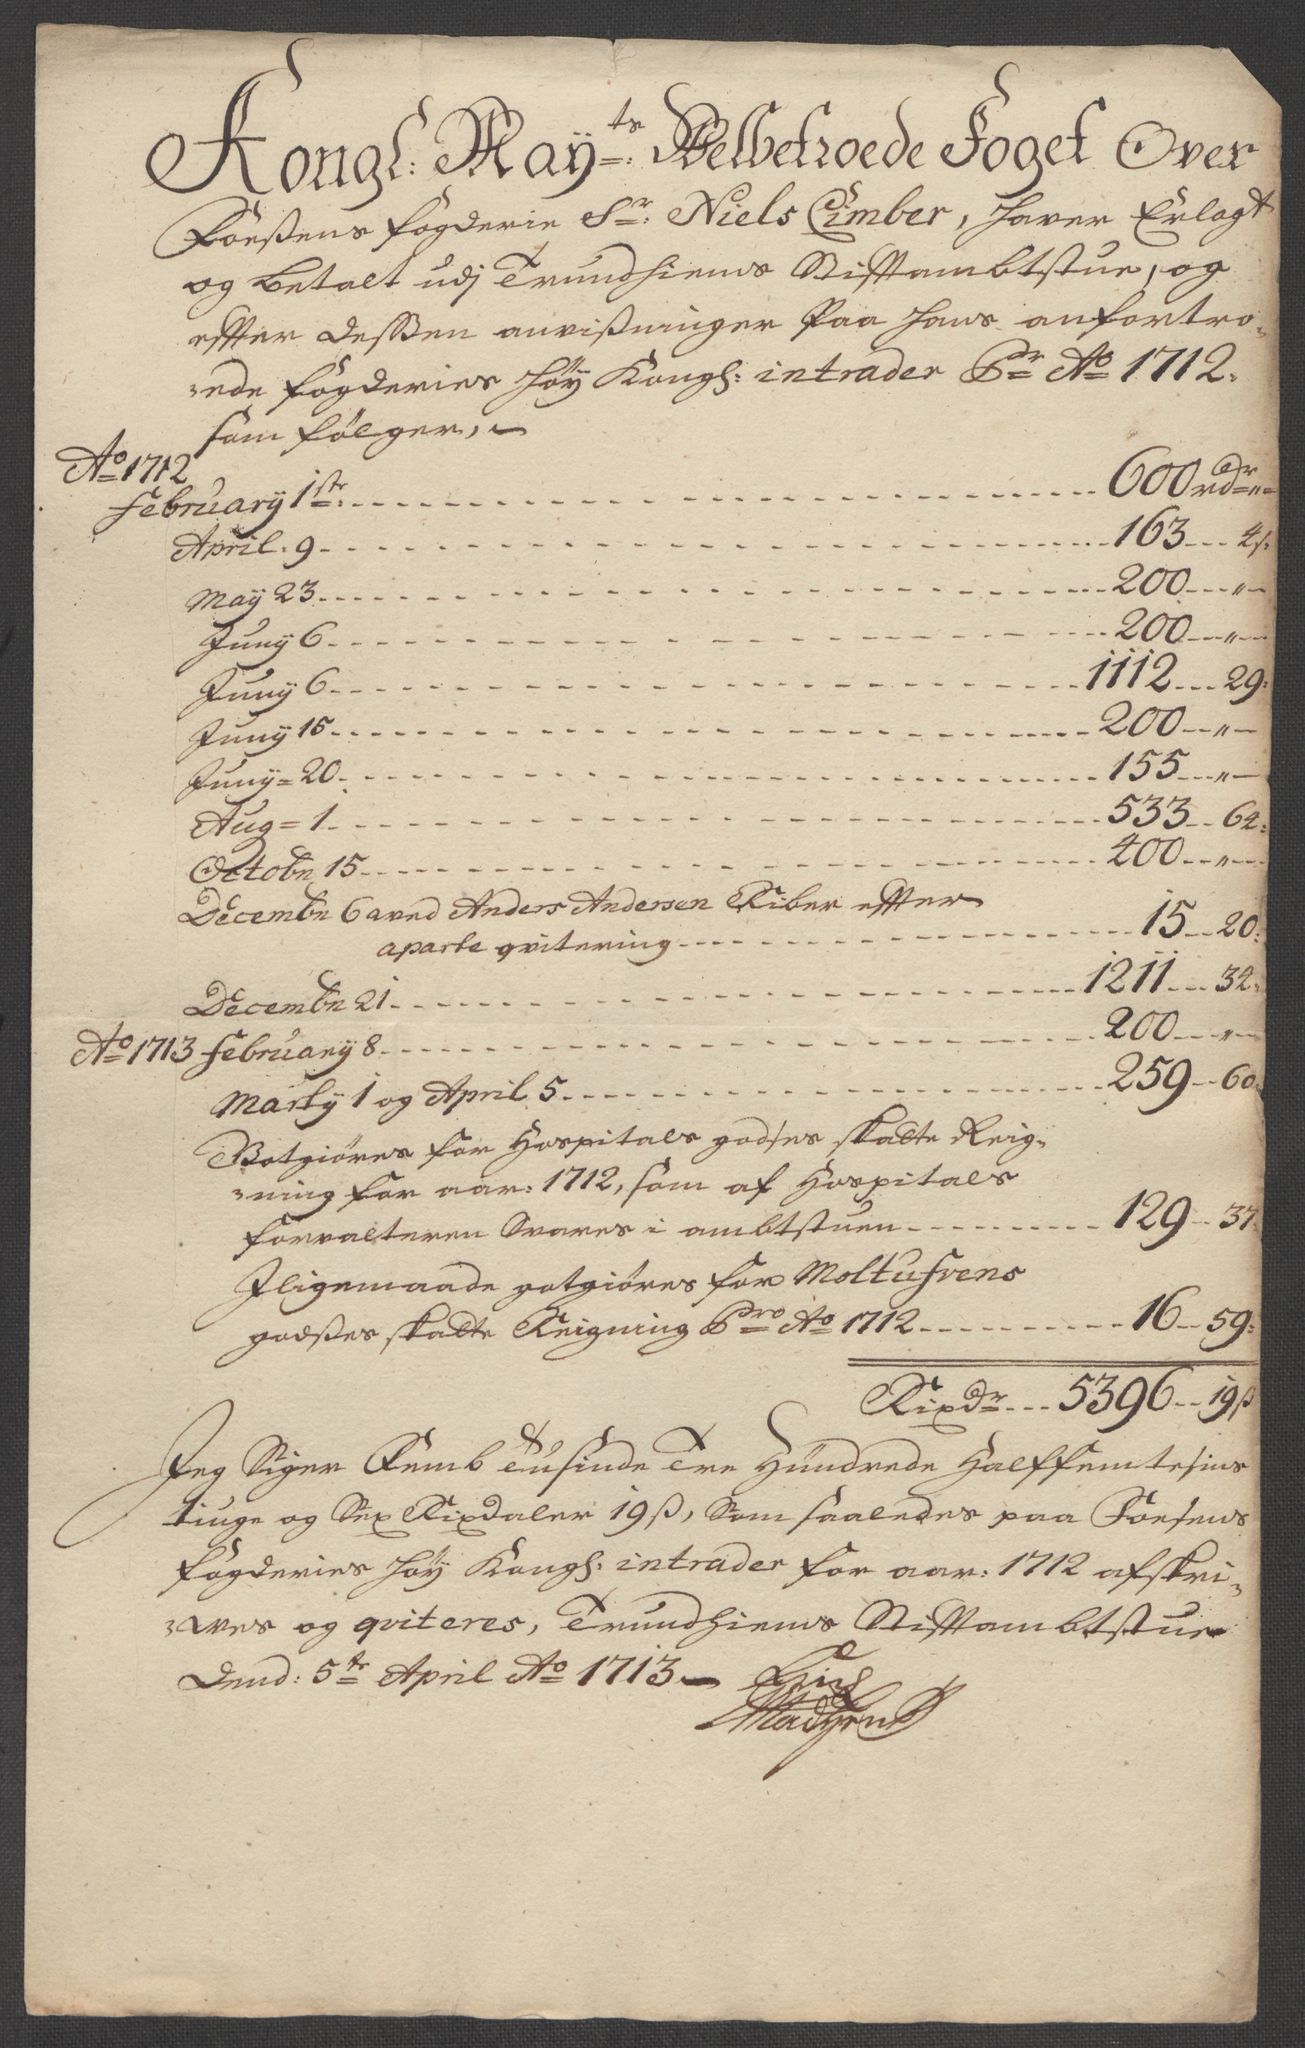 Kongl: May:ts Velbetroede Foget Over
Foeßens fogderie Sr: Niels Cimber, haver Erlagt
og betalt udj Trundhiems Stifftambtstue, og
effter deßen anvißninger paa hans anfortro-
-ede fogderies høy Kongl: intrader Pr Ao 1712.
som følger,
Ao 1712
February 1ste: 600 rdr "
April. 9 163 4s:
May 23 200 "
Juny 6 200 "
Juny 6 1112 29:
Juny 15 200 "
Juny = 20 155 "
Aug = 1 533 64:
Octobr 15 400 "
Decembr 6 aved Anders Andersen Riber effter
aparte qvitering 15 20:
Decembr 21 1211 34:
Ao 1713 February 8 200 "
Marty 1 og April 5 259 60:
Gotgiøres for Hospitals godses skatte Reig-
-ning for aar: 1712, som af Hospitals
forvalteren Svares i ambtstuen 129 37:
Jligemaade gotgiøres for Moltufrens
godßes skatte Reigning Pro Ao 1712 16 59:
Rixdr 5396 19ß
Jeg Siger Femb Tusinde Tre Hundrede Halffemtesins
tiuge og Sex Rixdaler 19 ß, Som saaledes paa Foesens
fogderies høy Kongl: intrader for aar: 1712 afskri-
-ves og qviteres, Trundhiems Stifftambtstue
Dend: 5te April Ao 1713